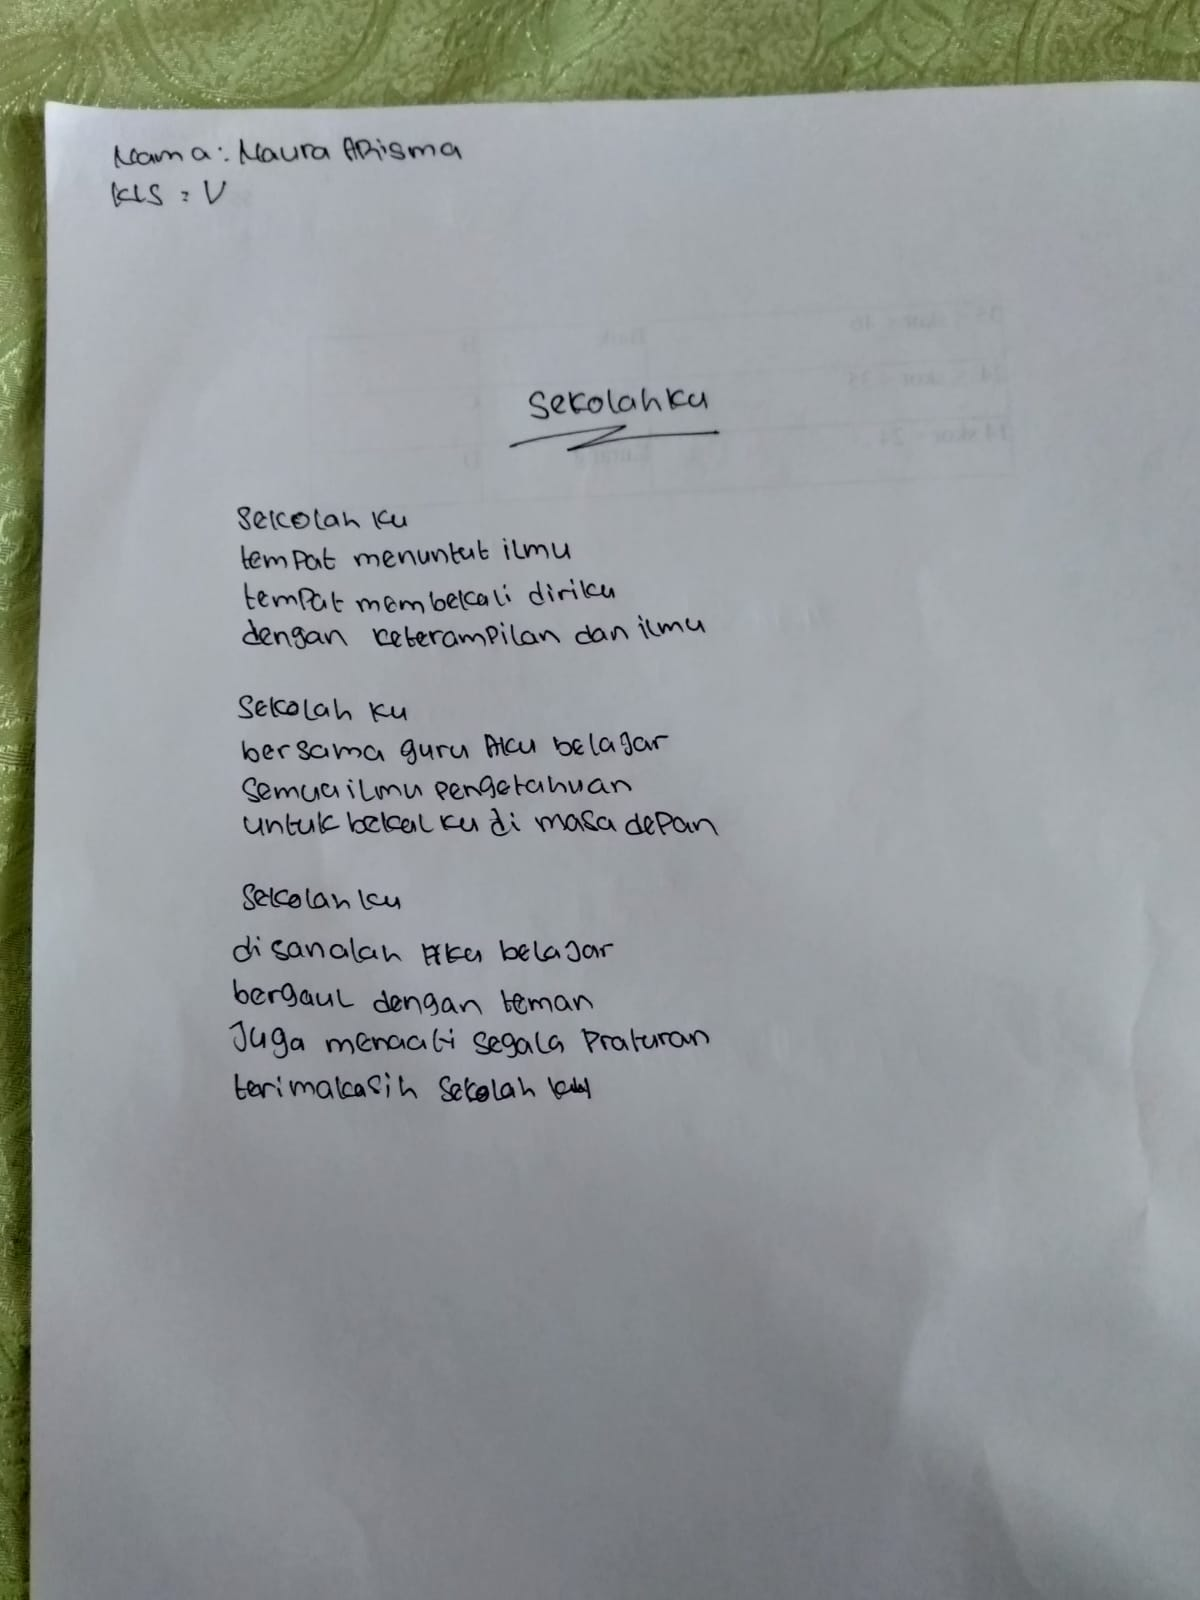 Nama: Naura ARisma
KLS : V
Sekolahku
Sekolah ku
tempat menuntut ilmu
tempat membekali diriku
dengan keterampilan dan ilmu
Sekolah ku
bersama guru Aku belajar
Semua ilmu pengetahuan
untuk bekal ku di masa depan
Sekolah ku
disanalah Aku belajar
bergaul dengan teman
Juga menaati segala Praturan
terimakasih Sekolah ku